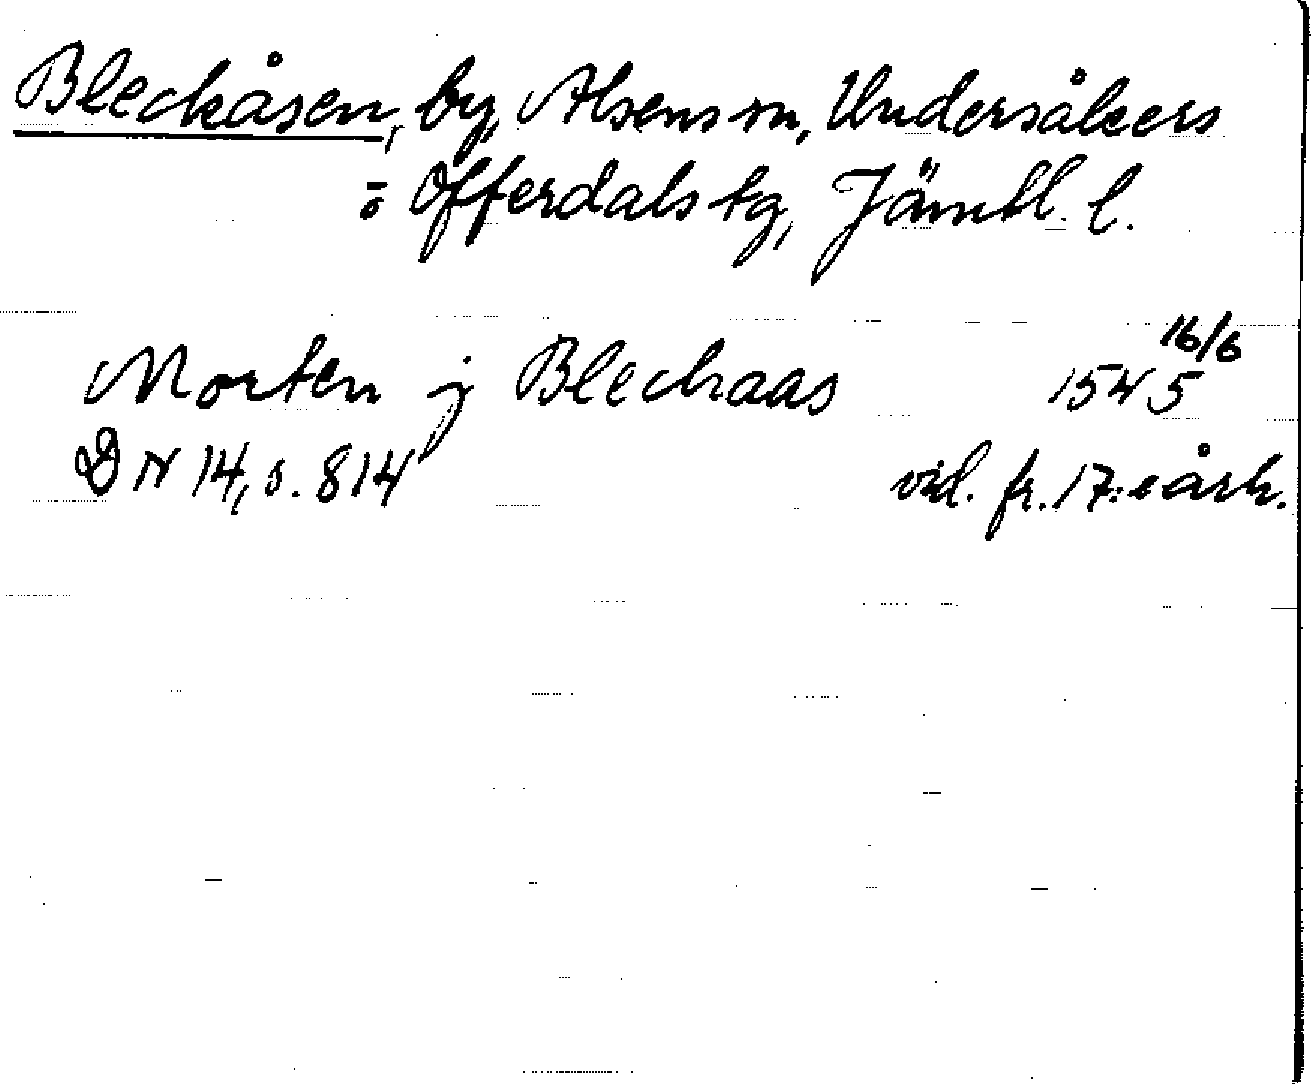 Bleckåsen, by, Alsens sn, Undersåkers
o Offerdals tg, Jämtl. l.
Morten j Bleckaas 1545 16/6
DN 14, s. 814 vid. fr. 17:e årh.